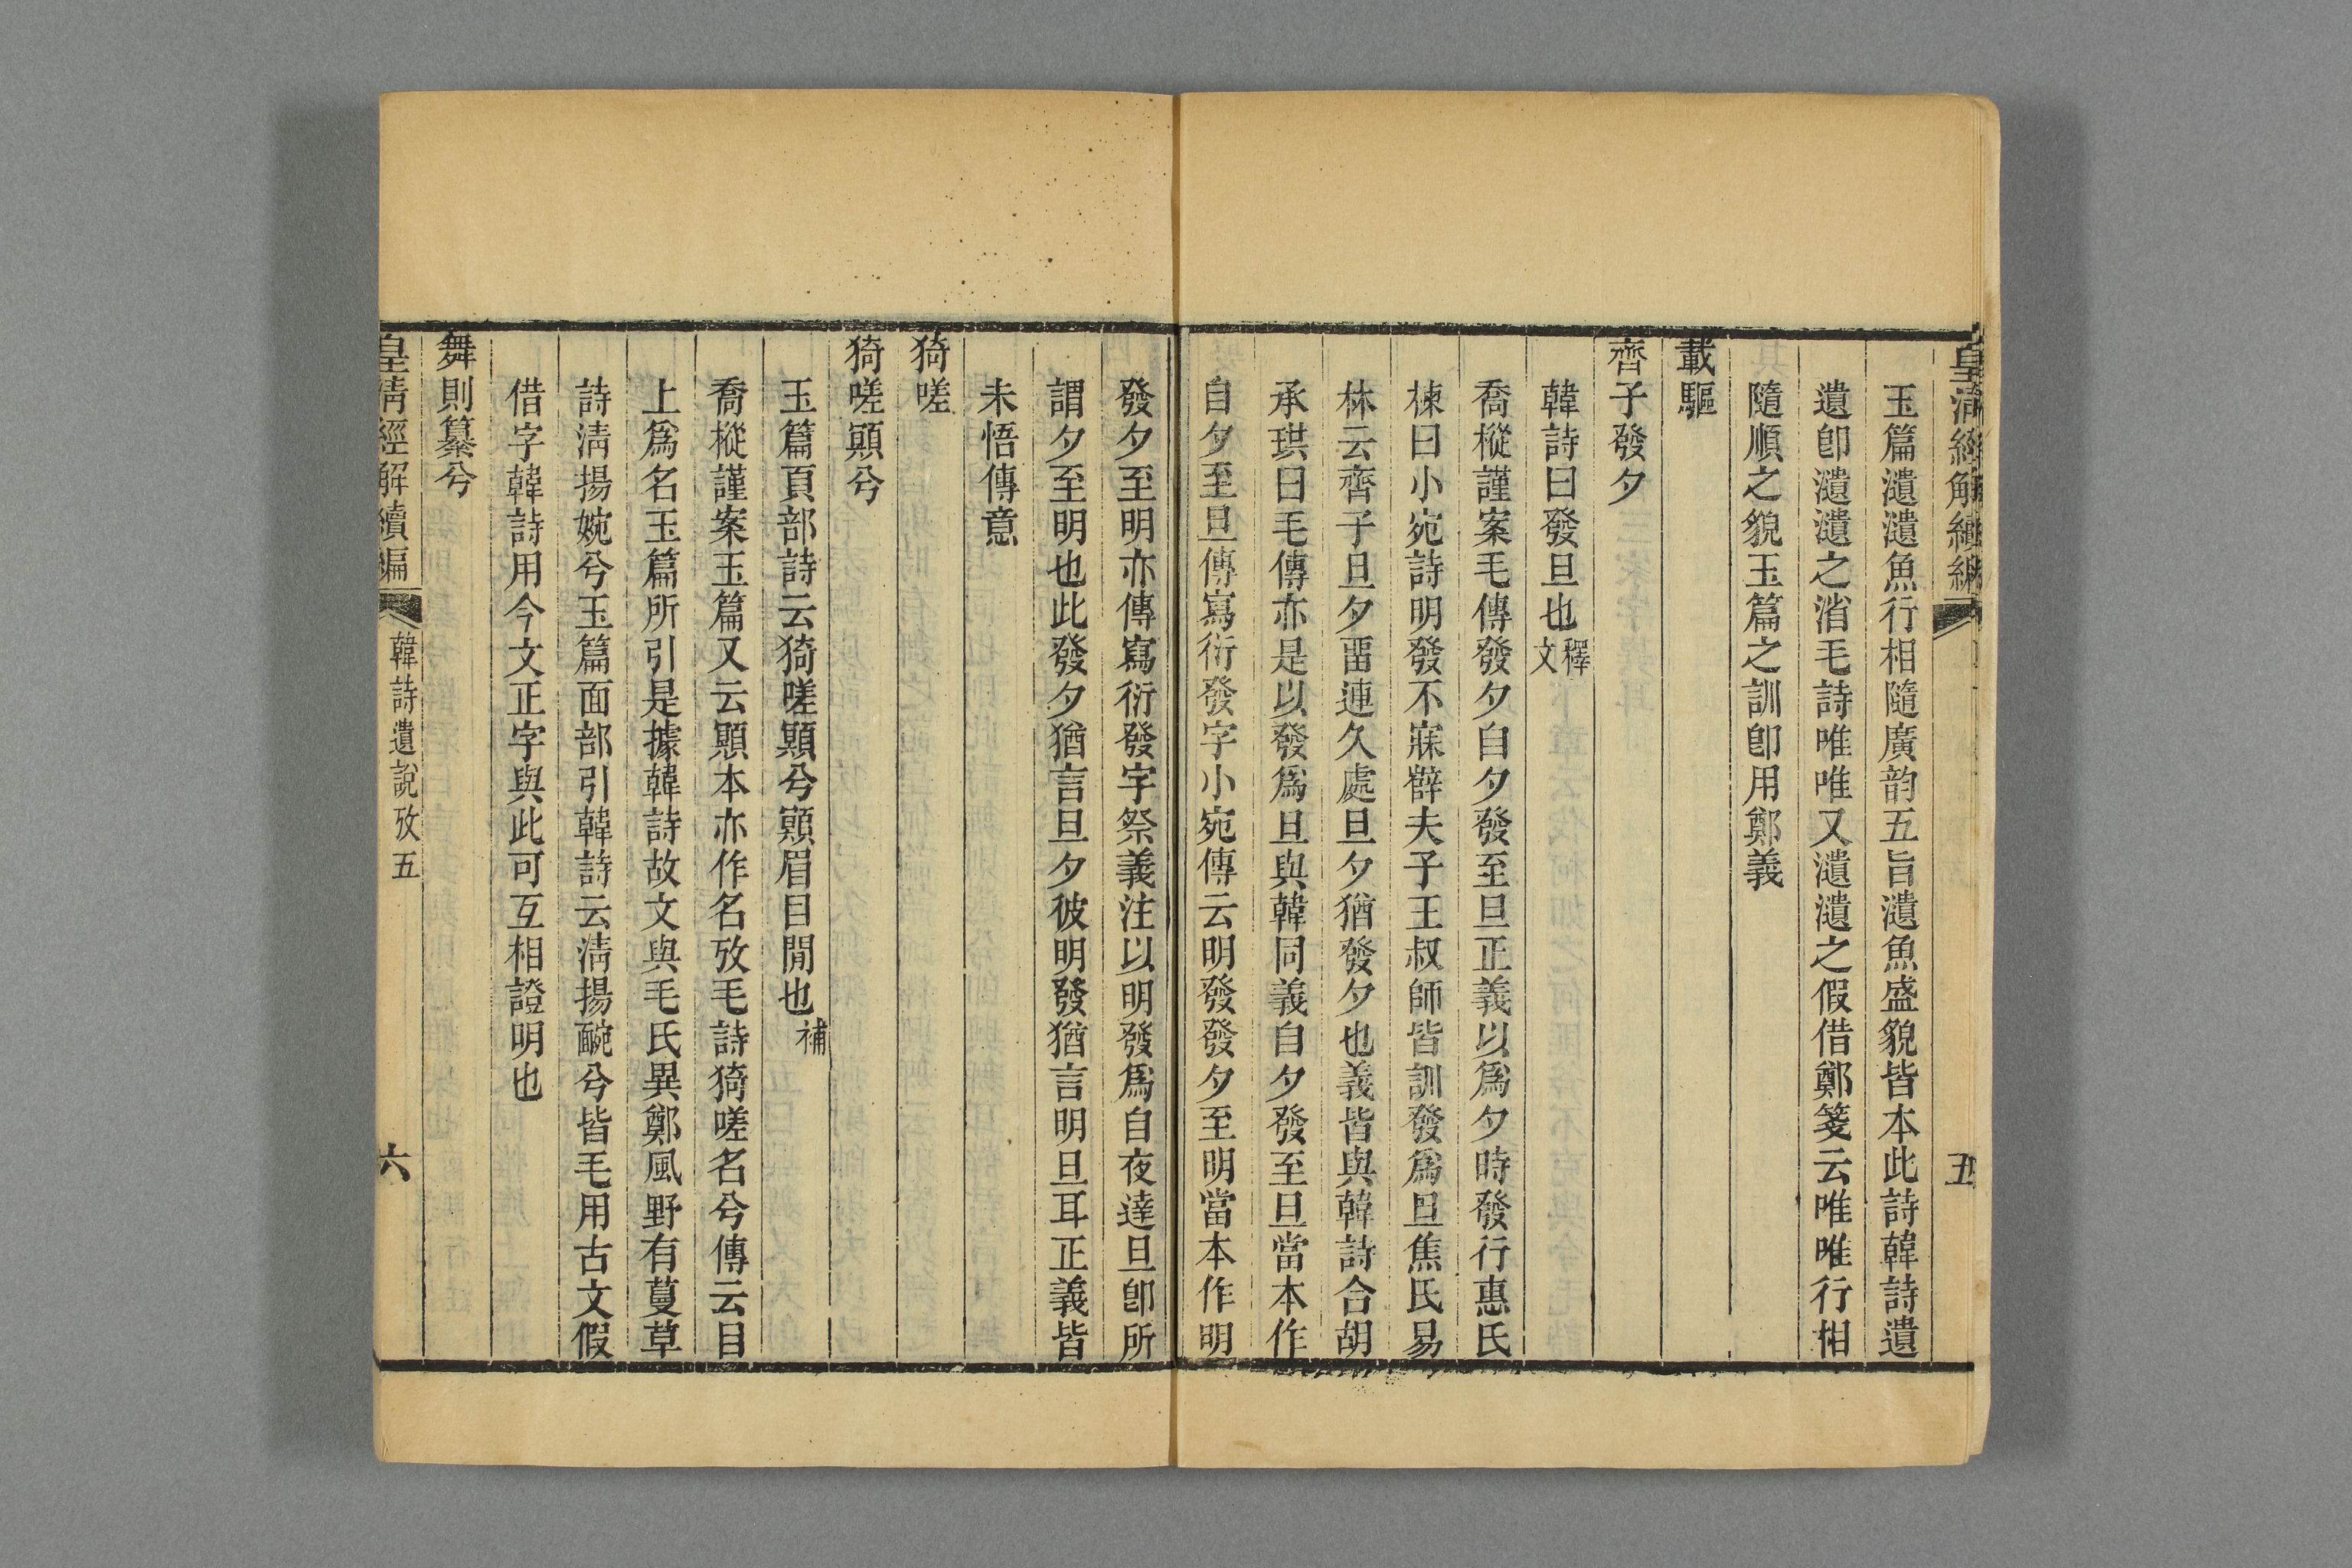 皇清經解續編
五
玉篇瀢瀢魚行相隨廣韵五旨瀢魚盛貌皆本此詩韓詩遺
遺卽瀢瀢之渻毛詩唯唯又瀢瀢之假借鄭箋云唯唯行相
隨順之貌玉篇之訓卽用鄭義
載驅
齊子發夕
韓詩曰發旦也釋文
喬樅謹案毛傳發夕自夕發至旦正義以爲夕時發行惠氏
棟曰小宛詩明發不寐薛夫子王叔師皆訓發爲旦焦氏易
林云齊子旦夕畱連久處旦夕猶發夕也義皆與韓詩合胡
承珙曰毛傳亦是以發爲旦與韓同義自夕發至旦當本作
自夕至旦傳寫衍發字小宛傳云明發發夕至明當本作明
發夕至明亦傳寫衍發字祭義注以明發爲自夜達旦卽所
謂夕至明也此發夕猶言旦夕彼明發猶言明旦耳正義皆
未悟傳意
猗嗟
猗嗟顮兮
玉篇頁部詩云猗嗟顯兮顮眉目閒也補
喬樅謹案玉篇又云顯本亦作名攷毛詩猗嗟名兮傳云目
上爲名玉篇所引是據韓詩故文與毛氏異鄭風野有蔓草
詩淸揚婉兮玉篇面部引韓詩云淸揚㽜兮皆毛用古文假
借字韓詩用今文正字與此可互相證明也
舞則纂兮
皇清經解續編
韓詩遺說攷五
六